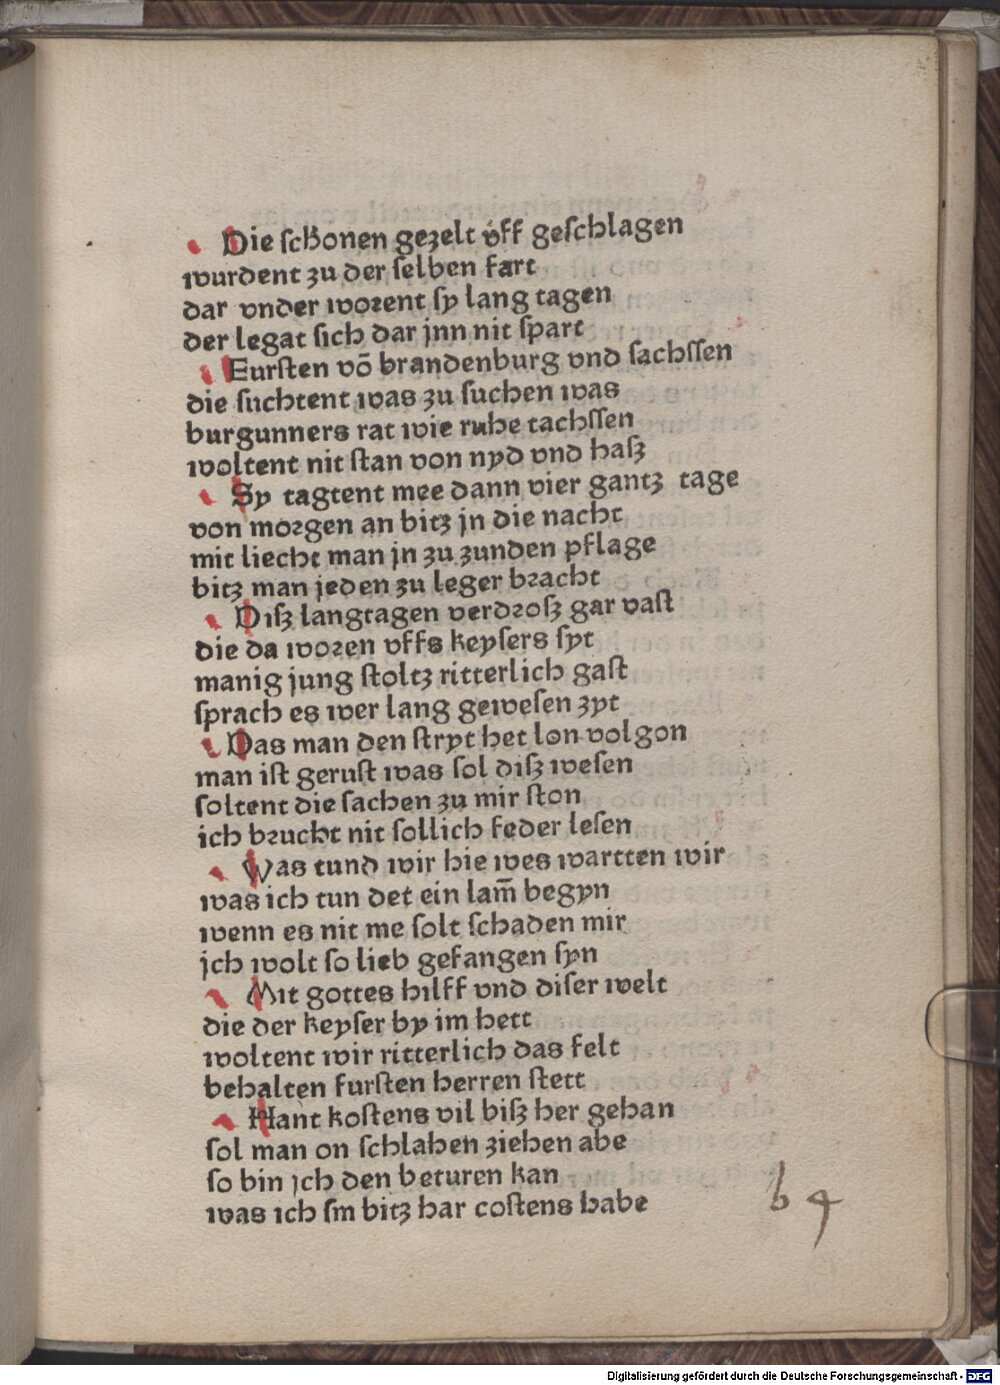 Die schonen gezelt vͤff geschlagen
wurdent zu der selben fart
dar vnder worent sy lang tagen
der legat sich dar jnn nit spart
Fursten vō brandenburg vnd sachssen
die suchtent was zu suchen was
burgunners rat wie ruhe tachssen
woltent nit stan von nyd vnd hasz
Sy tagtent mee dann vier gantz tage
von morgen an bitz jn die nacht
mit liecht man jn zu zunden pflage
bitz man jeden zu leger bracht
Disz langtagen verdrosz gar vast
die da woren vffs keysers syt
manig jung stoltz ritterlich gast
sprach es wer lang gewesen zyt
Das man den stryt het lon volgon
man ist gerust was sol disz wesen
soltent die sachen zu mir ston
ich brucht nit sollich feder lesen
Was tund wir hie wes wartten wir
was ich tun det ein lam̄ begyn
wenn es nit me solt schaden mir
jch wolt so lieb gefangen syn
Mit gottes hilff vnd diser welt
die der keyser by im hett
woltent wir ritterlich das felt
behalten fursten herren stett
Hant kostens vil bisz her gehan
sol man on schlahen ziehen abe
so bin jch den beturen kan
was ich sm bitz har costens habe
b 4
Digitalisierung gefördert durch die Deutsche Forschungsgemeinschaft - DFG